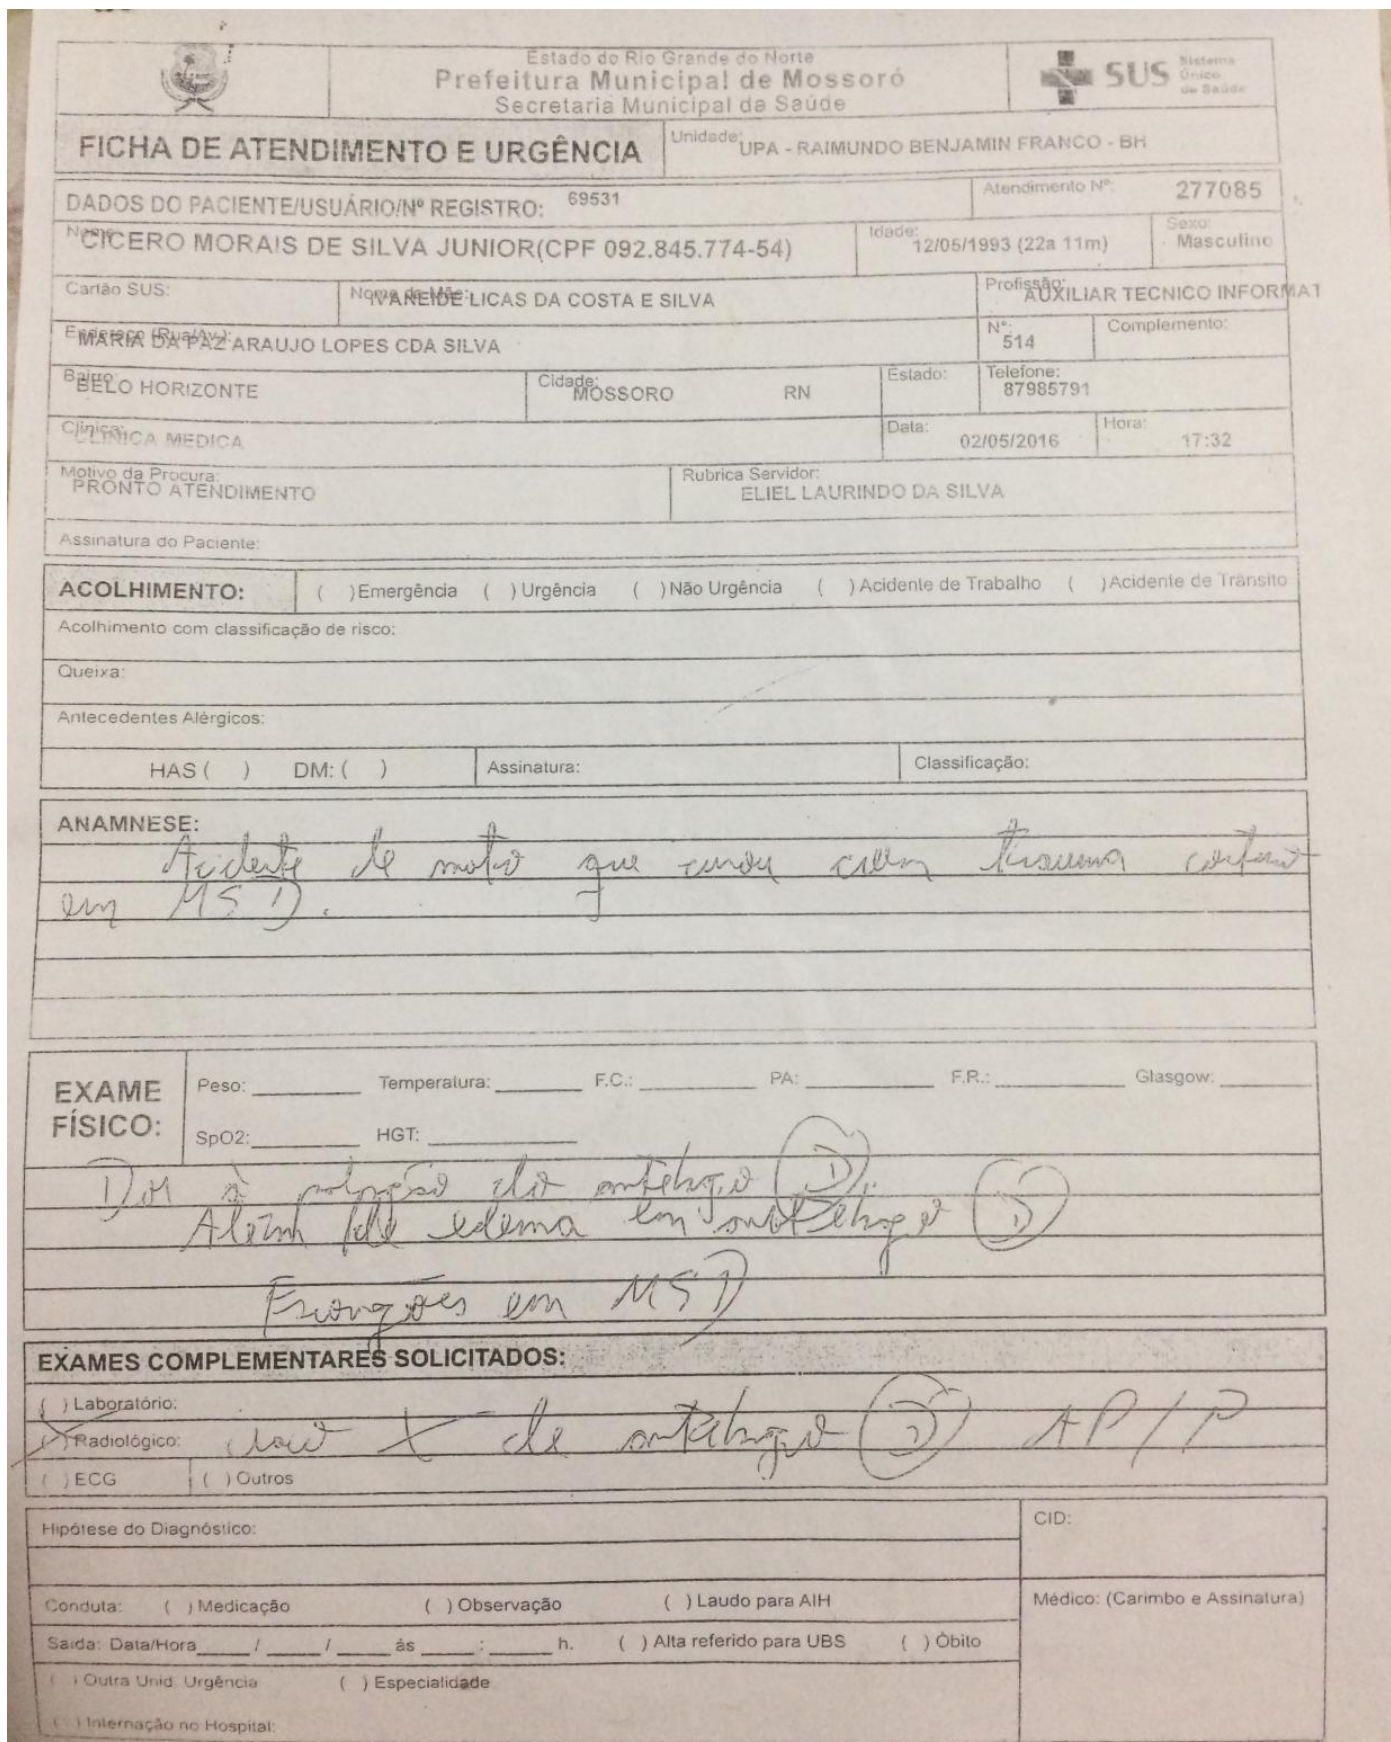 Estado do Rio Grande do Norte
Prefeitura Municipal de Mossoró
Secretaria Municipal da Saúde
SUS Sistema Único de Saúde
FICHA DE ATENDIMENTO E URGÊNCIA
Unidade: UPA - RAIMUNDO BENJAMIN FRANCO - BH
DADOS DO PACIENTE/USUÁRIO/Nº REGISTRO: 69531
Atendimento Nº: 277085
Nome: CICERO MORAIS DE SILVA JUNIOR(CPF 092.845.774-54)
Idade: 12/05/1993 (22a 11m)
Sexo: Masculino
Cartão SUS:
Nome da Mãe: IVANEIDE LICAS DA COSTA E SILVA
Profissão: AUXILIAR TECNICO INFORMAT
Endereço (Rua/Av.): MARIA DA PAZ ARAUJO LOPES CDA SILVA
Nº: 514
Complemento:
Bairro: BELO HORIZONTE
Cidade: MOSSORO RN
Estado:
Telefone: 87985791
Clínica: CLINICA MEDICA
Data: 02/05/2016
Hora: 17:32
Motivo da Procura: PRONTO ATENDIMENTO
Rubrica Servidor: ELIEL LAURINDO DA SILVA
Assinatura do Paciente:
ACOLHIMENTO: ( )Emergência ( )Urgência ( )Não Urgência ( )Acidente de Trabalho ( )Acidente de Trânsito
Acolhimento com classificação de risco:
Queixa:
Antecedentes Alérgicos:
HAS ( ) DM: ( ) Assinatura: Classificação:
ANAMNESE:
Acidente de moto que cursou com trauma
em MSD.
EXAME FÍSICO:
Peso: Temperatura: F.C.: PA: F.R.: Glasgow:
SpO2: HGT:
Dor à palpação do antebraço (D).
Além de edema em antebraço (D)
Escoriações em MSD
EXAMES COMPLEMENTARES SOLICITADOS:
( ) Laboratório:
(X) Radiológico: raio X de antebraço (D) AP/P
( ) ECG ( ) Outros
Hipótese do Diagnóstico:
CID:
Conduta: ( ) Medicação ( ) Observação ( ) Laudo para AIH
Médico: (Carimbo e Assinatura)
Saída: Data/Hora / / às : h. ( ) Alta referido para UBS ( ) Óbito
( ) Outra Unid. Urgência ( ) Especialidade
( ) Internação no Hospital: